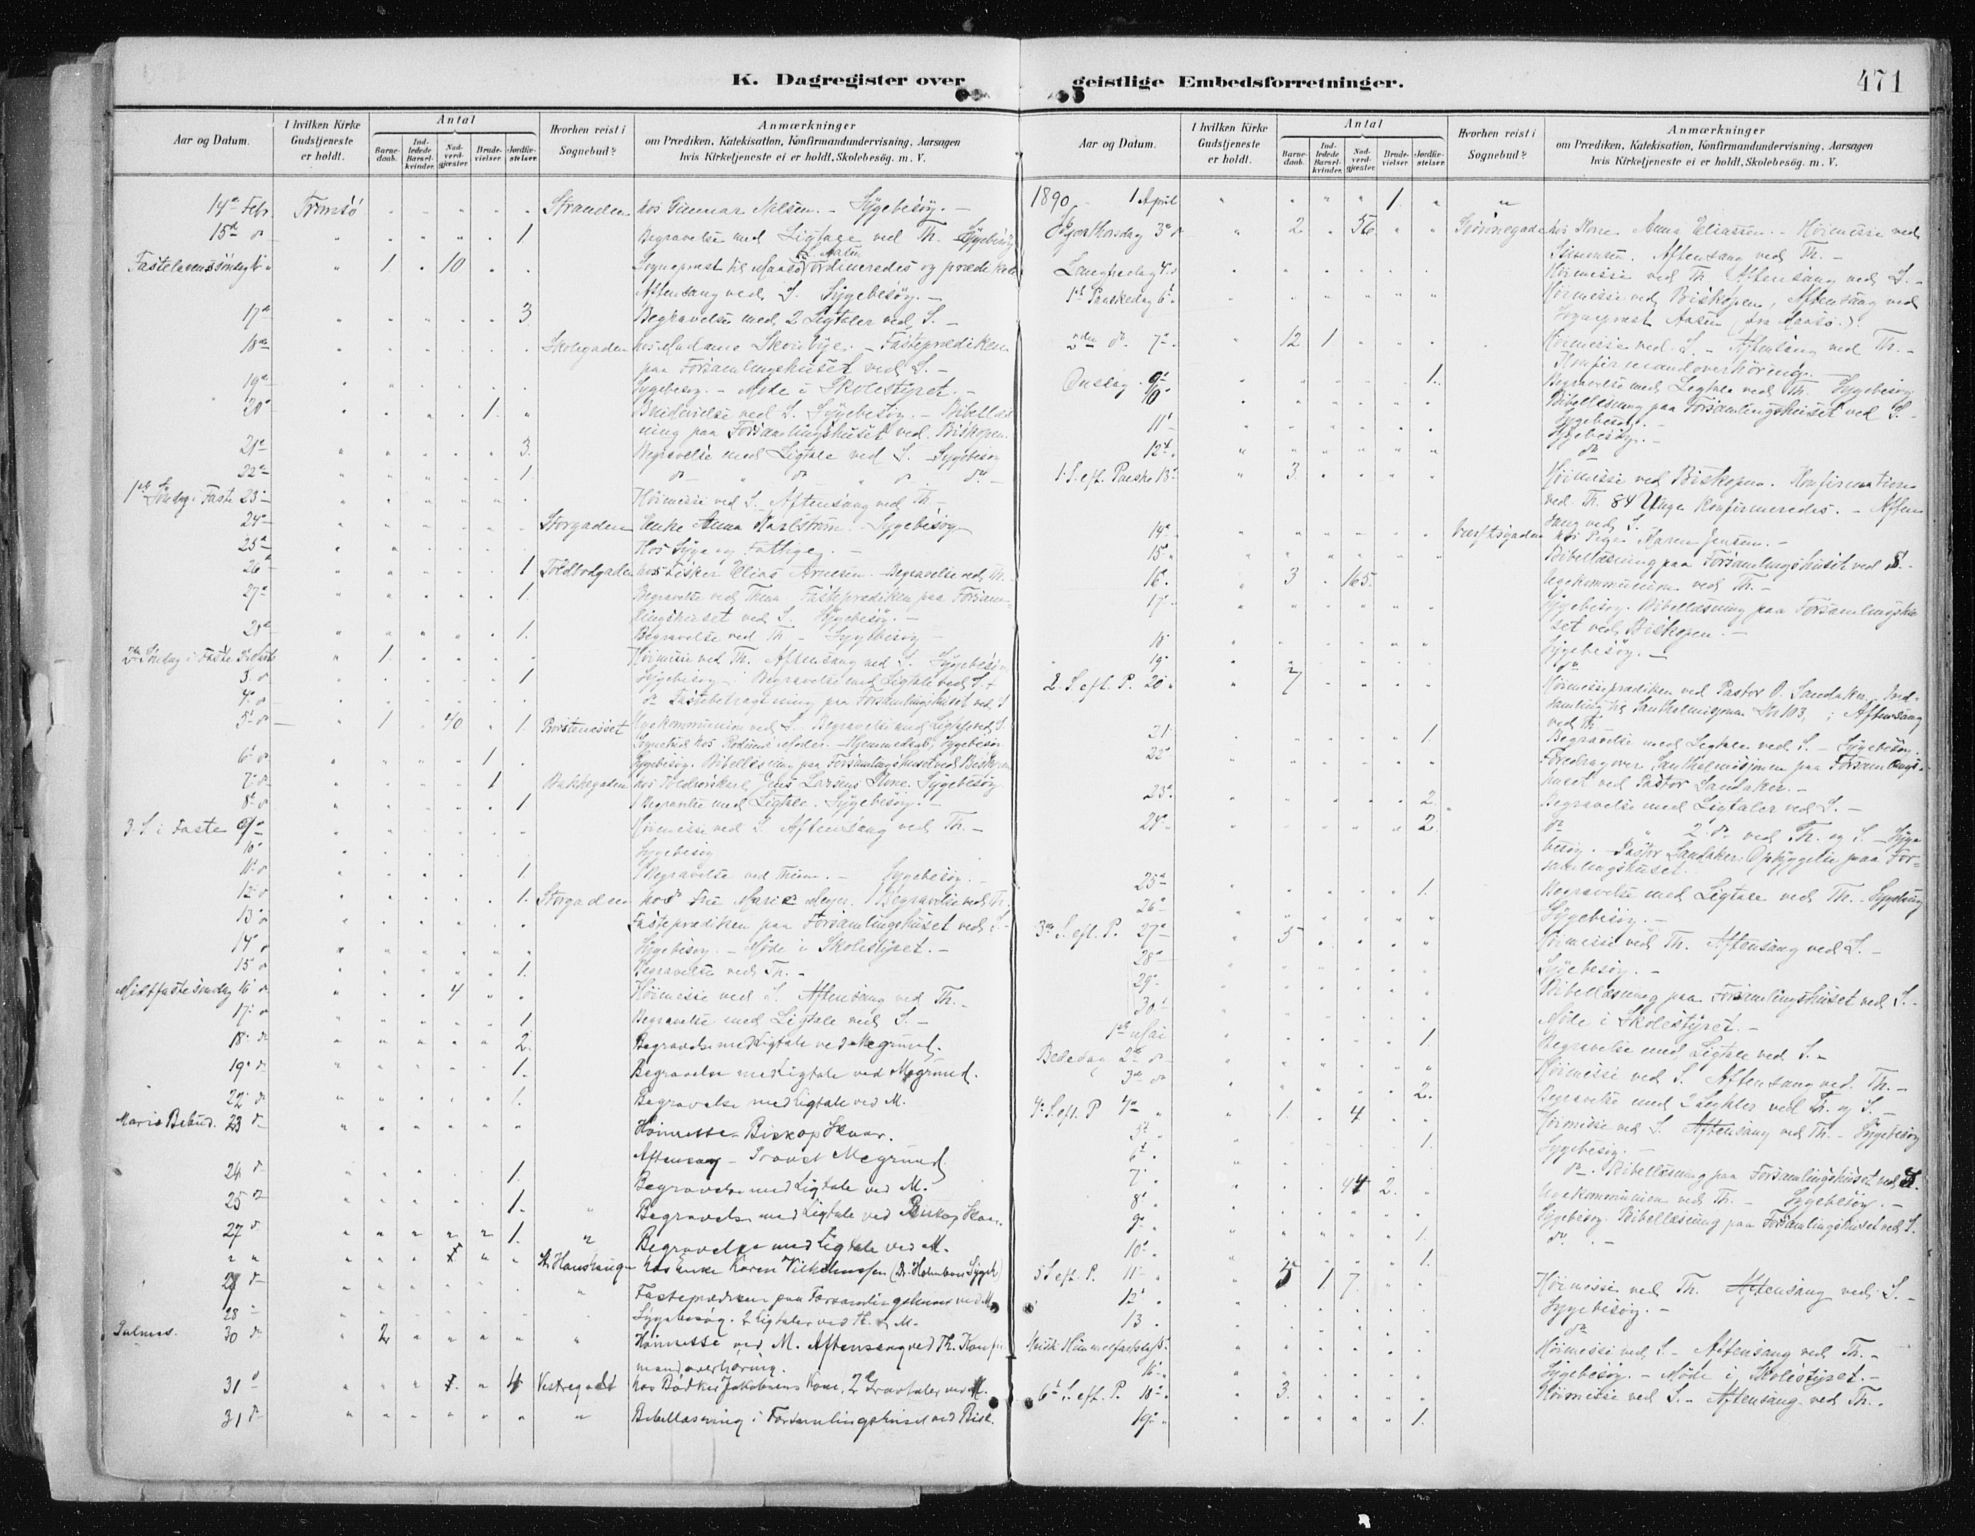 K. Dagregister over
geistlige Embedsforretninger.
471
Aar og Datum.
I hvilken Kirke Gudstjeneste er holdt.
Antal
Barnedaab.
Indledede Barselkvinder.
Nadverdgjester.
Brudevielser.
Jordfæstelser.
Hvorhen reist i Sognebud?
Anmærkninger
om Prædiken, Katekisation, Konfirmandundervisning, Aarsagen
hvis Kirketjeneste ei er holdt, Skolebesøg. m. V.
14de Febr. Tromsø Stranden hos Gunnar Nilsen. – Sygebesøg. –
15de 1 Begravelse med Ligtale ved Th. Sygebesøg
Fastelavenssøndag 1 10 Sogneprest til Maasø Aalen Ordineredes og prædikede
Aftensang ved S. Sygebesøg. –
17de 3 Begravelse med 2 Ligtaler ved S. –
18de Skolegaden hos Madame – Fasteprædiken
paa Forsamlingshuset ved S. –
19de Sygebesøg. – Møde i Skolestyret. –
20de 1. Brudevielse ved S. Sygebesøg. – Bibellæs
ning paa Forsamlingshuset ved Biskopen.
21de 3. Begravelse med Ligtale ved S. Sygebesøg
22de 1
1ste Søndag i Faste 23 Høimesse ved S. Aftensang ved Th. –
24de Storgaden Enke Anna Karlstrøm. – Sygebesøg
25de Hos Syge og Fattige. –
26de 1 Toldbodgaden hos Fisker Elias Arnesen. Begravelse ved Th.
27de 1. Begravelse ved Thime. Fasteprædiken paa Forsam-
lingshuset ved S. Sygebesøg. –
28de 1. Begravelse ved Th – Sygebesøg –
2den Søndag i Faste 1 Høimesse ved Th. Aftensang ved S. Sygebesøg
3 1 Sygebesøg – Begravelse med Ligtale ved S.
4 Fastebetragtning paa Forsamlingshuset ved S
5 1 40 1. Ugekommunion ved S. Begravelse med Ligtale ved S.
6 1 Sygebesøg. Bibellæsning paa Forsamlingshuset ved Biskopen
7 1 Bakkegaden hos Jens Larsens Kone. Sygebesøg
8 1 Begravelse med Ligtale. Sygebesøg. –
3. S. i Faste 9 Høimesse ved S. Aftensang ved Th. –
10 Sygebesøg
11 1 Begravelse ved Thime. – Sygebesøg. –
12 1. Storgaden hos Fru Marie Meyer. Begravelse ved Th.
13 Fasteprædiken paa Forsamlingshuset ved S. –
14 Sygebesøg. – Møde i Skolestyret. –
15 1. Begravelse ved Th. –
Midtfastesøndag 16 4 Høimesse ved S. Aftensang ved Th. –
17 1 Begravelse med Ligtale ved S. –
18 2. Begravelse med Ligtale ved Megrund.
19 1. Begravelse med Ligtale ved Megrund.
22 1. Begravelse med Ligtale ved M.
Mariæ Bebud. 23 Høimesse – Biskop Skaar.
Aftensang – Provst Megrund.
24 1. Begravelse med Ligtale ved M.
25 1. Begravelse med Ligtale ved Biskop Skaar.
27 1. Begravelse med Ligtale ved M.
St. Hanshaugen hos Enke Karen Vilhelmsen
27 Fasteprædiken paa Forsamlingshuset ved M.
28 Sygebesøg. 2 Ligtaler ved Th. & M.
Palmes. 30 2 Høimesse ved M. Aftensang ved Th. Konfir
mandoverhøring.
31 4 Vestregade hos Bødker Jakobsens Kone. 2 Gravtaler ved M.
31 Bibellæsning i Forsamlingshuset ved Bisk.
Aar og Datum.
I hvilken Kirke Gudstjeneste er holdt.
Antal
Barnedaab.
Indledede Barselkvinder.
Nadverdgjester.
Brudevielser.
Jordfæstelser.
Hvorhen reist i Sognebud?
Anmærkninger
om Prædiken, Katekisation, Konfirmandundervisning, Aarsagen
hvis Kirketjeneste ei er holdt, Skolebesøg. m. V.
1890 1 April 1.
Skjærthorsdag 3 2 56 Grønnegaden hos Anna Eliassen. – Høimesse ved
Aftensang ved Th. –
Langfredag 4 Høimesse ved Th. Aftensang ved S. –
1ste Paaskedag 6 Høimesse ved Biskopen, Aftensang ved
Sogneprest Aalen (fra Maasø.)
2den 7 12 1 Høimesse ved S. – Aftensang ved Th. –
Konfirmandoverhøring. –
Onsdag 9 1. Begravelse med Ligtale ved Th. – Sygebesøg
10 Bibellæsning paa Forsamlingshuset ved S. –
Sygebesøg. –
11 Sygebesøg. –
12
1. S. eft. Paaske 13 3 Høimesse ved Biskopen. Konfirmation
ved Th. 84 Unge Konfirmeredes. – Aften
sang ved S.
14 Værftsgaden hos Pige Karen Jensen. –
15 Bibellæsning paa Forsamlingshuset ved S. –
16 3 165 Ugekommunion ved Th. –
17 Sygebesøg. Bibellæsning paa Forsamlingshu
set ved Biskopen. –
18 Sygebesøg. –
19
2. S. eft. P. 20 7 Høimesseprædiken ved Pastor O. Sandaker, Ind-
samling til Santhalmisjonen ; Aftensang
ved Th.
21 1 Begravelse med Ligtale ved S. – Sygebesøg.
22 Foredrag over Santhalmisjonen paa Forsamlings-
huset ved Pastor Sandaker. –
23 2. Begravelse med Ligtaler ved S. –
24 2 2 ved Th. og S. – Syge
besøg. – Pastor Sandaker: Opbyggelse paa For-
samlingshuset.
25 1. Begravelse med Ligtale ved Th. Sygebesøg
26 Sygebesøg. –
3die S. eft. P. 27 5 Høimesse ved Th. Aftensang ved S. –
28 Sygebesøg. –
29 Bibellæsning paa Forsamlingshuset ved S. –
30 Møde i Skolestyret. –
1ste Mai 1. Begravelse med Ligtale ved S. –
Bededag 2 Høimesse ved S. Aftensang ved Th. –
3 2. Begravelse med 2 Ligtaler ved Th. og S. –
4. S. eft. P 4 1. 4 Høimesse ved S. Aftensang ved Th. – Sygebesøg
5 1. Sygebesøg. –
6 Bibellæsning paa Forsamlingshuset ved S.
7 44 2. Ugekommunion ved Th. – Sygebesøg. –
8 Sygebesøg. Bibellæsning paa Forsamlingshuset ved S.
9 1.
10 1.
5 S. eft. P. 11 5 1 7. Høimesse ved Th. Aftensang ved S. –
12 Sygebesøg. –
13
Kristi Himmelfartsdag Høimesse ved S. – Aftensang ved Th. –
16 Sygebesøg. – Møde i Skolestyret. –
6te S. eft. P. 18 3. Høimesse ved S. – Aftensang ved Th. –
19 1.